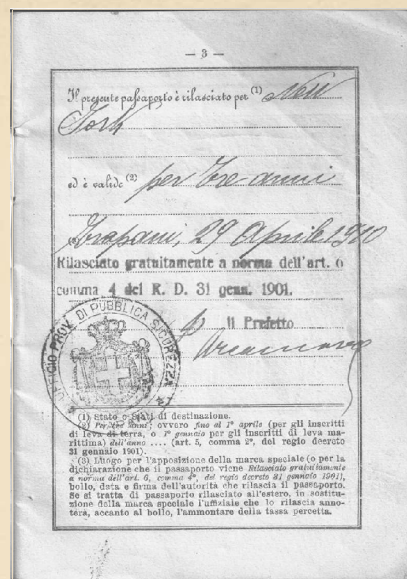 — 3 —
Il presente passaporto è rilasciato per (1) New
York
ed è valido (2) per tre anni
Trapani, 29 Aprile 1910
Rilasciato gratuitamente a norma dell'art. 6
comma 4 del R. D. 31 genn. 1901.
p Il Prefetto
UFFICIO PROV. DI PUBBLICA SICUREZZA
(1) Stato o Stati di destinazione.
(2) Per tre anni; ovvero fino al 1º aprile (per gli inscritti
di leva di terra, o 1º gennaio per gli inscritti di leva ma-
rittima) dell'anno .... (art. 5, comma 2º, del regio decreto
31 gennaio 1901).
(3) Luogo per l'apposizione della marca speciale (o per la
dichiarazione che il passaporto viene Rilasciato gratuitamente
a norma dell'art. 6, comma 4º, del regio decreto 31 gennaio 1901),
bollo, data e firma dell'autorità che rilascia il passaporto.
Se si tratta di passaporto rilasciato all'estero, in sostitu-
zione della marca speciale l'uffiziale che lo rilascia anno-
terà, accanto al bollo, l'ammontare della tassa percetta.